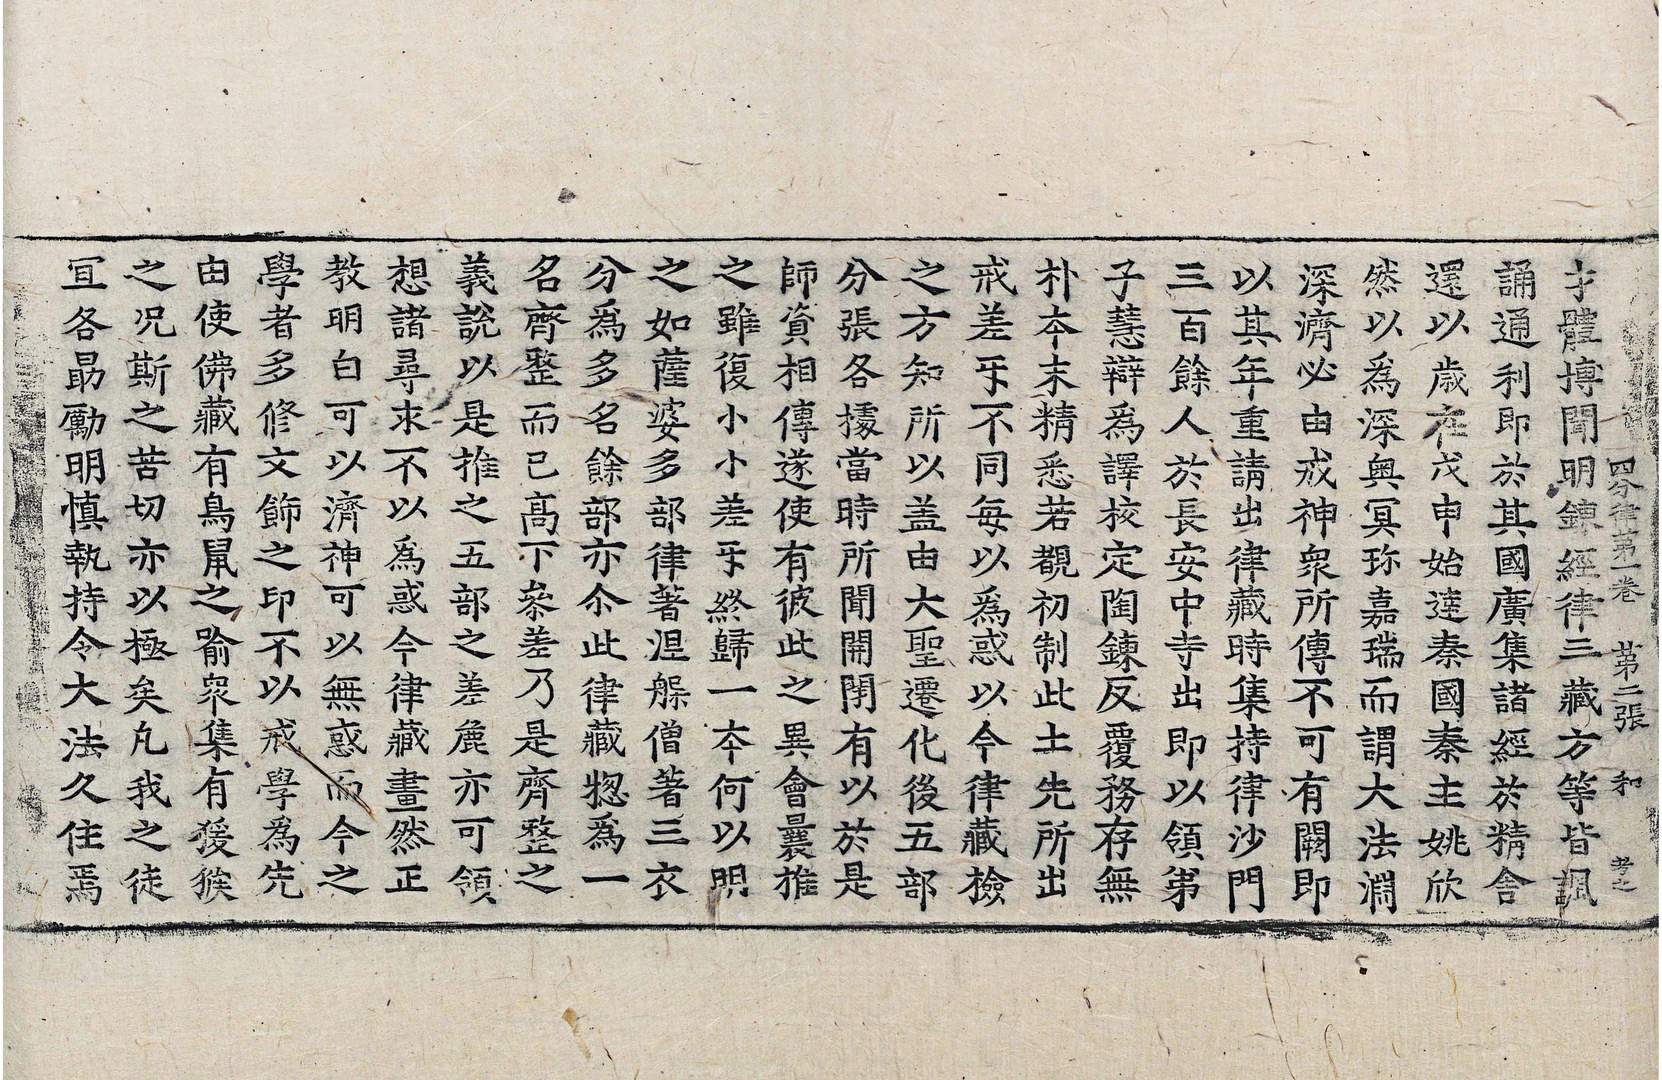 四分律第一卷　第二張　和　孝之
才體博聞明鍊經律三藏方等皆諷
誦通利即於其國廣集諸經於精舍
還以歳在戊申始達秦國秦主姚欣
然以為深奥冥珎嘉瑞而謂大法淵
深濟必由戒神衆所傳不可有闕即
以其年重請出律藏時集持律沙門
三百餘人於長安中寺出即以領弟
子慧辯為譯校定陶鍊反覆務存無
朴夲末精悉若覩初制此土先所出
戒差㸦不同每以為惑以今律藏撿
之方知所以盖由大聖遷化後五部
分張各據當時所聞開閇有以於是
師資相傳遂使有彼此之異會曩推
之雖復小小差㸦終歸一夲何以明
之如薩婆多部律著涅槃僧著三衣
分為多名餘部亦尒此律藏惣為一
名齊整而已髙下叅差乃是齊整之
義說以是推之五部之差麁亦可領
想諸尋末不以為惑今律藏畫然正
教明白可以濟神可以無惑而今之
學者多修文飾之印不以戒學為先
由使佛藏有鳥鼠之喻衆集有猨猴
之况斯之苦切亦以極矣凢我之徒
宜各勗勵明慎執持令大法久住焉